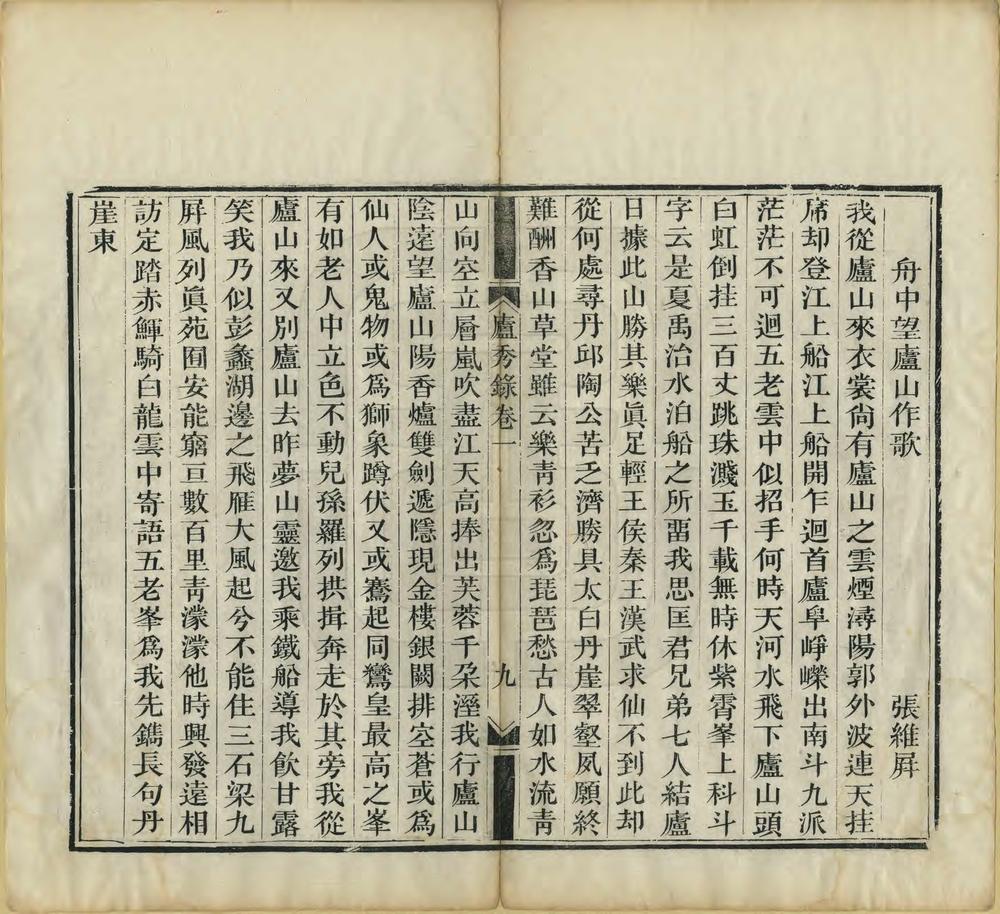 舟中望廬山作歌　張維屛
我從廬山來衣裳尙有廬山之雲煙潯陽郭外波連天挂
席却登江上船江上船開乍迴首廬阜崢嶸出南斗九派
茫茫不可迴五老雲中似招手何時天河水飛下廬山頭
白虹倒挂三百丈跳珠濺玉千載無時休紫霄峯上科斗
字云是夏禹治水泊船之所畱我思匡君兄弟七人結廬
日據此山勝其樂眞足輕王侯秦王漢武求仙不到此却
從何處尋丹邱陶公苦乏濟勝具太白丹崖翠壑夙願終
難酬香山草堂雖云樂靑衫忽爲琵琶愁古人如水流靑
廬秀錄卷一
九
山向空立層嵐吹盡江天高捧出芙蓉千朶溼我行廬山
陰遠望廬山陽香爐雙劍遞隱現金樓銀闕排空蒼或爲
仙人或鬼物或爲獅象蹲伏又或騫起同鸞皇最高之峯
有如老人中立色不動兒孫羅列拱揖奔走於其旁我從
廬山來又別廬山去昨夢山靈邀我乘鐵船導我飮甘露
笑我乃似彭蠡湖邊之飛雁大風起兮不能住三石梁九
屛風列眞苑囿安能窮亘數百里靑濛濛他時興發遠相
訪定踏赤鯶騎白龍雲中寄語五老峯爲我先鐫長句丹
崖東